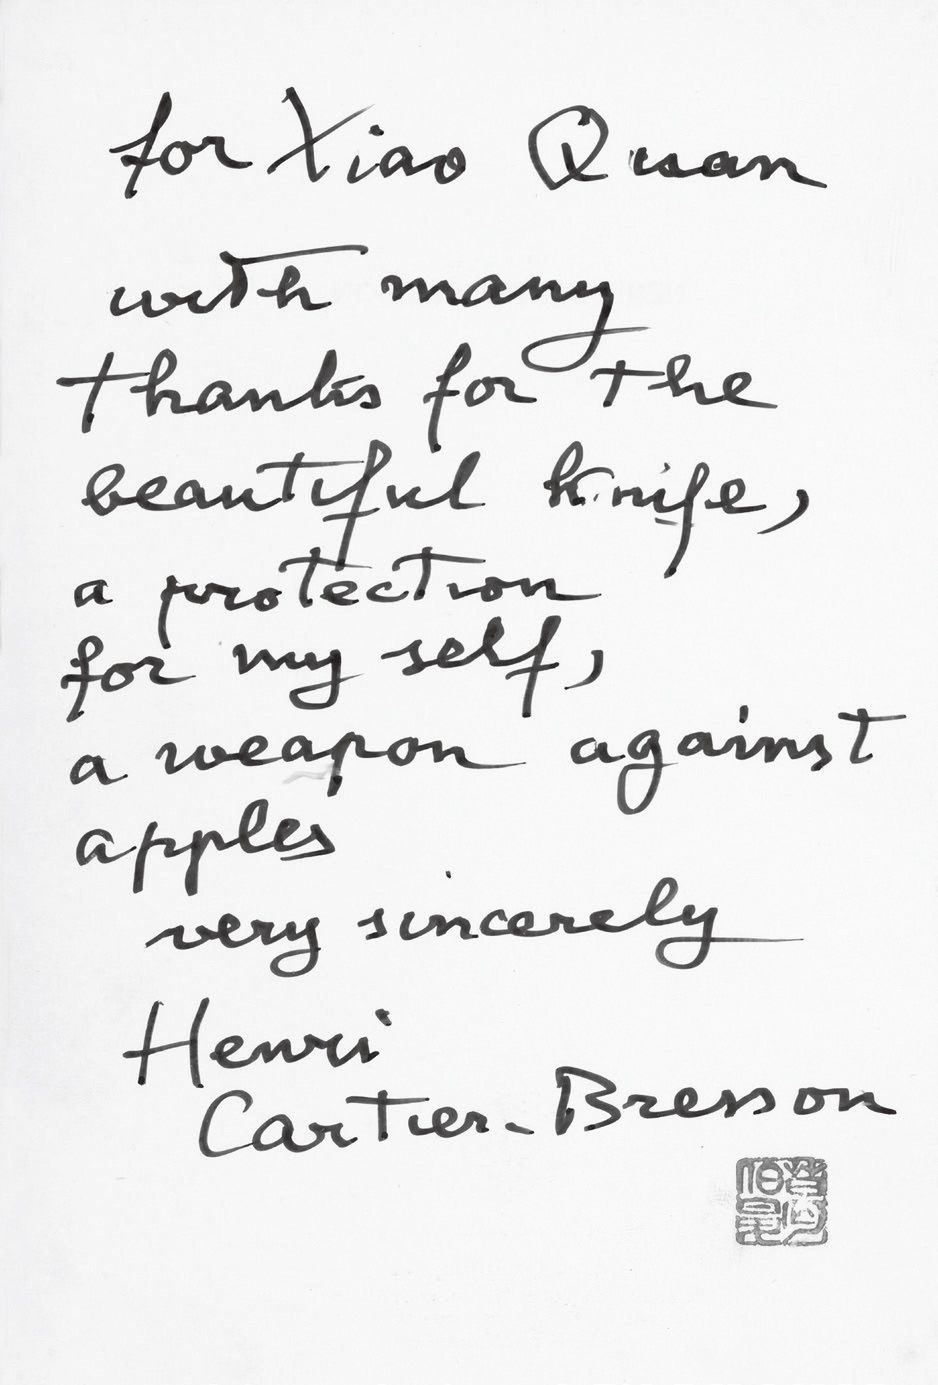 for Xiao Quan
with many
thanks for the
beautiful knife,
a protection
for my self,
a weapon against
apples
very sincerely
Henri
Cartier-Bresson